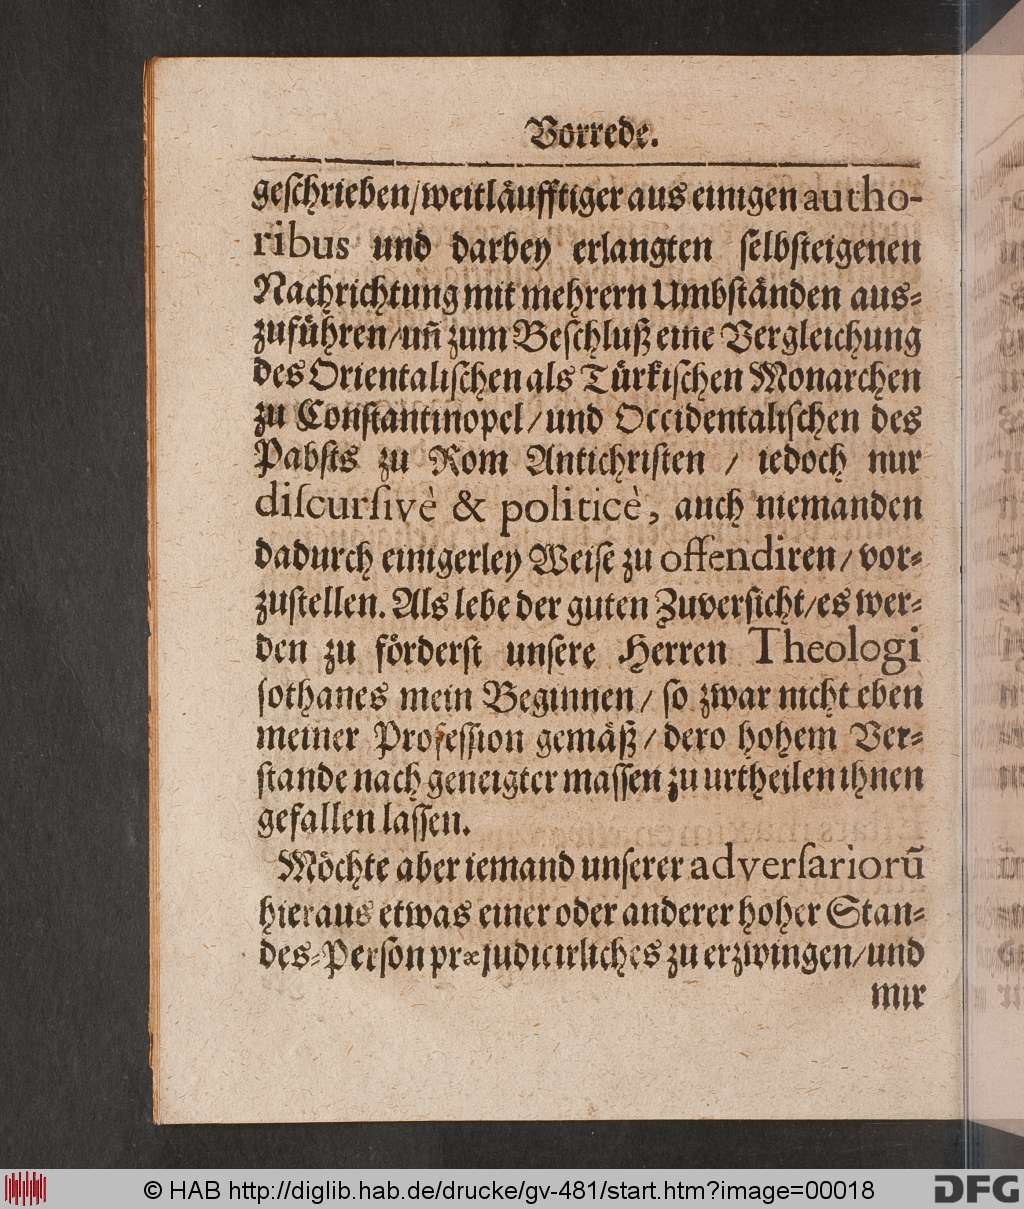 Vorrede.
geſchrieben/weitläufftiger aus einigen autho-
ribus und darbey erlangten ſelbſteigenen
Nachrichtung mit mehrern Umbſtänden aus-
zuführen/uñ zum Beſchluß eine Vergleichung
des Orientaliſchen als Türkiſchen Monarchen
zu Conſtantinopel/und Occidentaliſchen des
Pabſts zu Rom Antichriſten / iedoch nur
diſcurſivè & politicè, auch niemanden
dadurch einigerley Weiſe zu offendiren/vor-
zuſtellen. Als lebe der guten Zuverſicht/es wer-
den zu förderſt unſere Herren Theologi
ſothanes mein Beginnen/ ſo zwar nicht eben
meiner Profeſſion gemäß/dero hohem Ver-
ſtande nach geneigter maſſen zu urtheilen ihnen
gefallen laſſen.
Möchte aber iemand unſerer adverſarioru͂
hieraus etwas einer oder anderer hoher Stan-
des-Perſon præjudicirliches zu erzwingen/und
mir
© HAB http://diglib.hab.de/drucke/gv-481/start.htm?image=00018
DFG